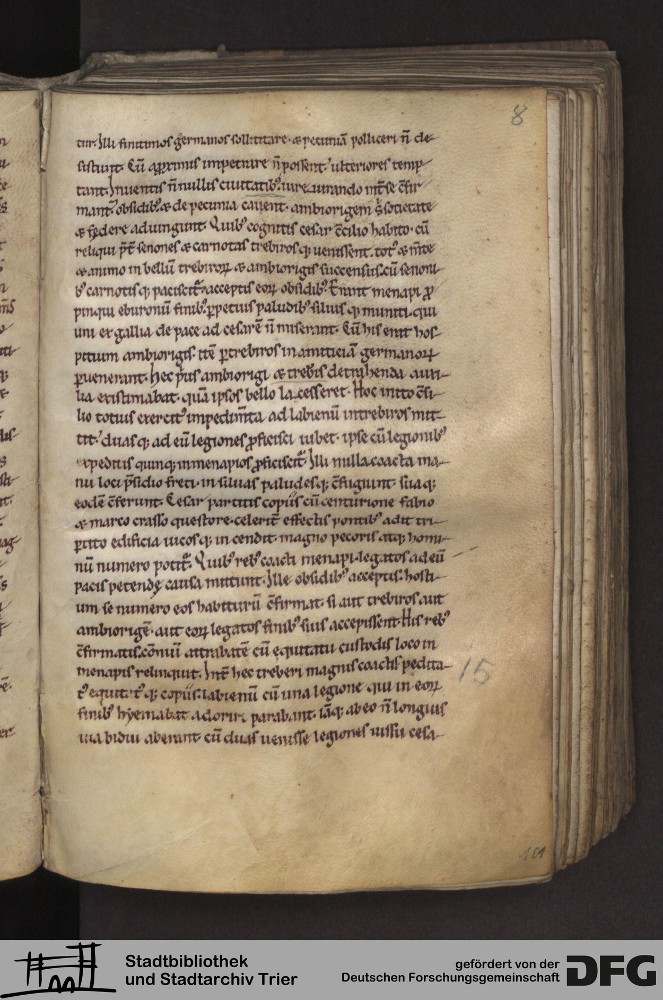 8
tur. Illi finitimos germanos sollicitare. & pecuniā polliceri n̄ de-
sistunt. Cū a pximis impetrare n̄ possent. ulteriores temp-
tant. Inuentis n̄ nullis ciuitatib; iure iurando int̄ se c̄fir-
mant. obsidib; & de pecunia cauent. ambiorigem s̄ societate
& foedere adiungunt. Quib; cognitis cesar c̄cilio habito. cū
reliqui p̄t senones & carnotas trebiros q; uenissent. tot; & m̄te
& animo in bellū trebiroꝝ & ambiorigis succensus. cū senoni-
b; carnotis q; paciscit̄ acceptis eoꝝ obsidib;. Erant menapi ꝓ
pinqui eburonū finib; ꝑpetuis paludib; siluis q; muniti. qui
uni ex gallia de pace ad cesarē n̄ miserant. Cū his erat hos-
pitium ambiorigis. tē ꝑ trebiros in amiticiā germanoꝝ
ꝑuenerant. Hec p̄us ambiorigi & trebis detrahenda auxi-
lia existimabat. quā ipsos bello lacesseret. Hoc inito c̄si-
lio totius exercit; impedim̄ta ad labienū in trebiros mit-
tit. duas q; ad eū legiones ꝓficisci iubet. ipse cū legionib;
expeditis quinq; in menapios ꝓficiscit̄. Illi nulla coacta ma-
nu loci p̄sidio freti. in siluas paludes q; c̄fugiunt. sua q;
eodē c̄ferunt. Cesar partitis copiis cū centurione fabio
& marco crasso questore. celerit̄ effectis pontib; adit tri-
ꝑtito edificia uicos q; incendit. magno pecoris atq; homi-
nū numero potit̄. Quib; reb; coacti menapi. legatos ad eū
pacis petendę causa mittunt. Ille obsidib; acceptis. hosti-
um se numero eos habiturū c̄firmat. si aut trebiros aut
ambiorigē. aut eoꝝ legatos finib; suis accepissent. His reb;
c̄firmatis. cōmū attrabatē cū equitatu custodis loco in
menapis relinquit. Int̄ hec treberi magnis coactis pedita-
t; equitat; q; copiis. labienū cū una legione qui in eoꝝ
finib; hyemabat adoriri parabant. iāq; ab eo n̄ longius
uia bidui aberant. cū duas uenisse legiones iussu cesa-
15
Stadtbibliothek
und Stadtarchiv Trier
gefördert von der
Deutschen Forschungsgemeinschaft
DFG